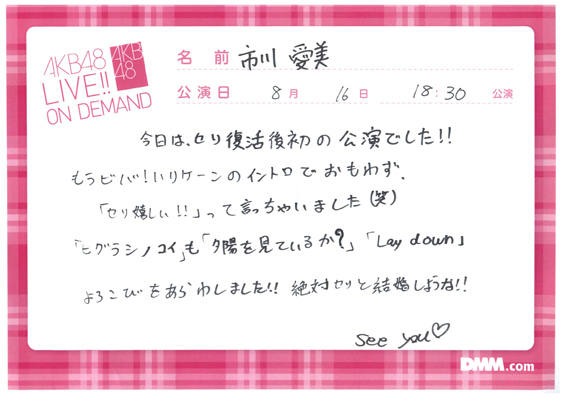 AKB48
LIVE!!
ON DEMAND
AKB
48
名前 市川 愛美
公演日 8月 16日 18:30 公演
今日は、セリ復活後初の公演でした!!
もうビバ!ハリケーンのイントロでおもわず、
「セリ嬉しい!!」って言っちゃいました(笑)
「ヒグラシノコイ」も「夕陽を見ているか?」「Lay down」
よろこびをあらわしました!! 絶対セリと結婚しような!!
see you♡
DMM.com